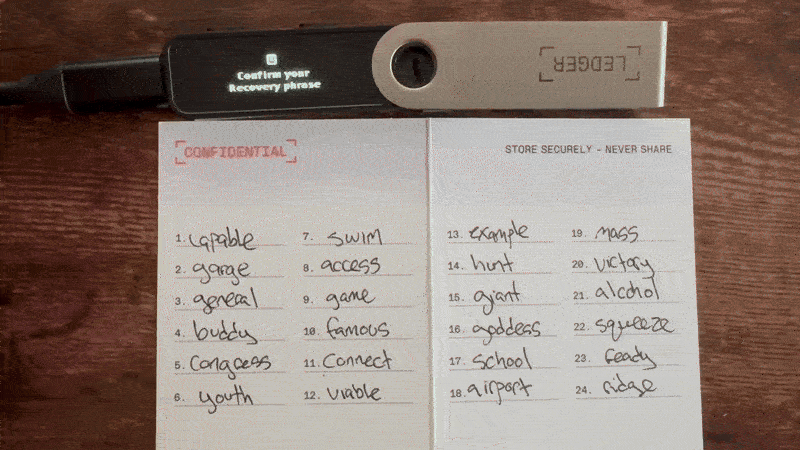 Confirm your
Recovery phrase
LEDGER
CONFIDENTIAL
STORE SECURELY - NEVER SHARE
1. capable
2. garge
3. general
4. buddy
5. Congress
6. youth
7. swim
8. access
9. game
10. famous
11. Connect
12. viable
13. example
14. hunt
15. giant
16. goddess
17. school
18. airport
19. mass
20. victory
21. alcohol
22. squeeze
23. ready
24. ridge